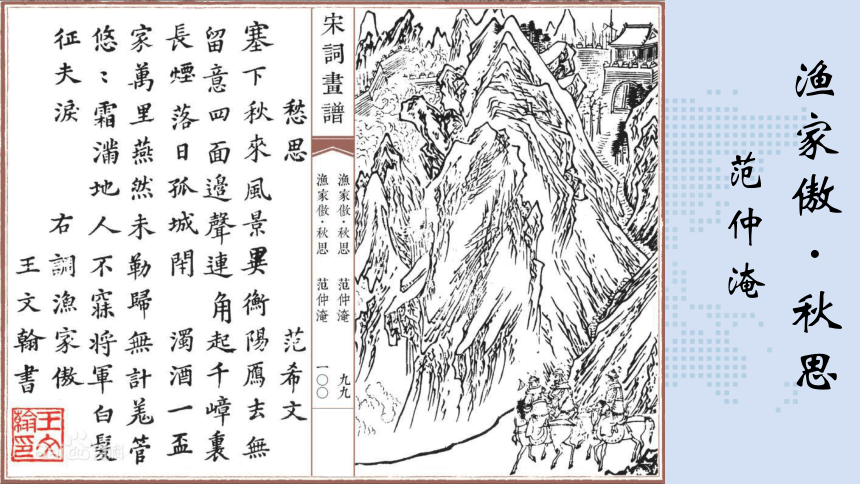 渔家傲·秋思
范仲淹
宋詞畫譜
漁家傲·秋思 范仲淹 九九
漁家傲·秋思 范仲淹 一〇〇
愁思 范希文
塞下秋來風景異衡陽鴈去無
留意四面邊聲連角起千嶂裏
長煙落日孤城閉 濁酒一盃
家萬里燕然未勒歸無計羌管
悠〻霜滿地人不寐將軍白髮
征夫淚 右調漁家傲
王文翰書
王文翰印